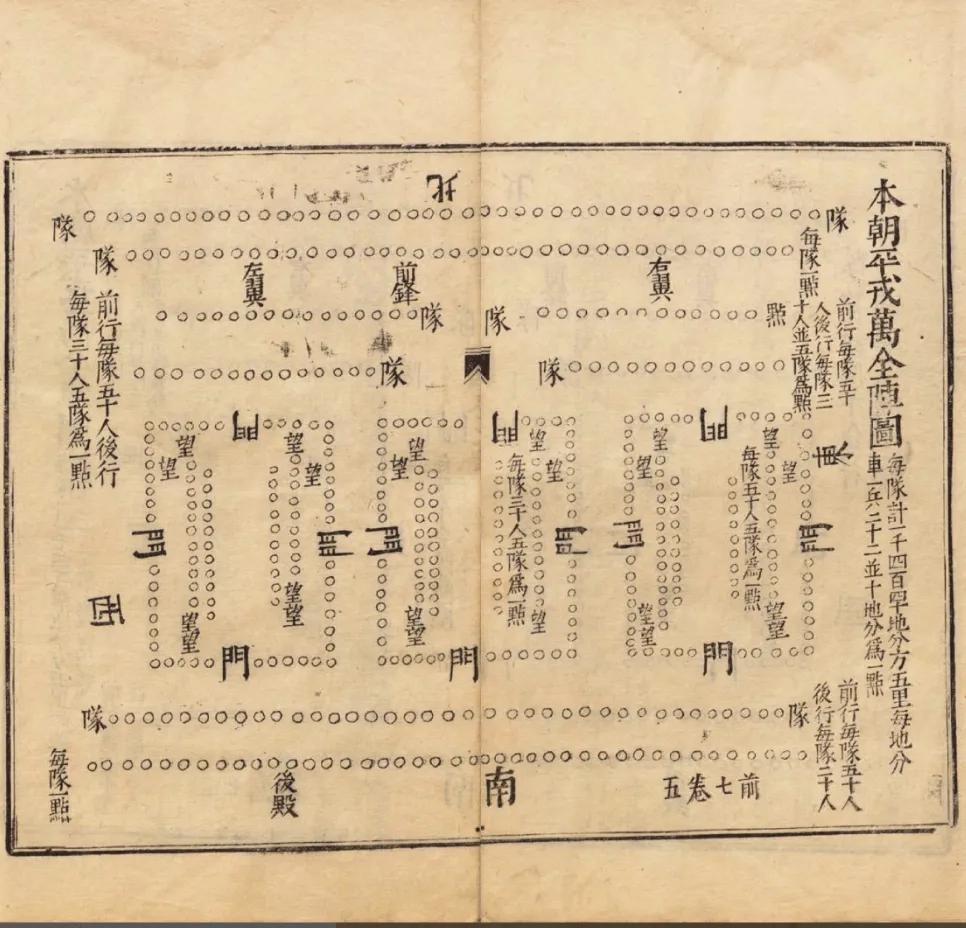 本朝平戎萬全陣圖
每隊計一千四百四十地分方五里每地分
車一兵二十二並十地分爲一點
北
隊
每隊一點
前行每隊五十
人後行每隊三
十人並五隊爲點
右翼
點
隊
隊
東
門
望
望
門
每隊五十人五隊爲一點
望望
門
望
望
門
望望
門
門
望
望
門
每隊三十人五隊爲一點
望
門
前鋒
左翼
隊
隊
隊
隊
前行每隊五十人後行
每隊三十人五隊爲一點
望
望
門
望望
門
門
望
望
門
望望
門
望
望
門
望望
西
隊
前行每隊五十人
後行每隊三十人
隊
每隊一點
後殿
南
前七卷五